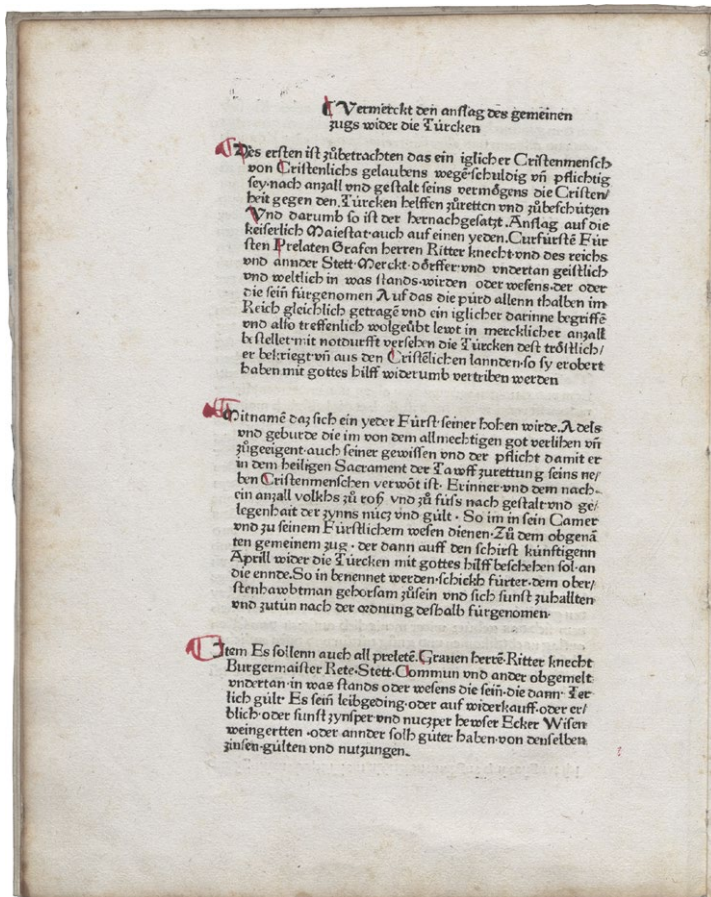 Vermerckt den anslag des gemeinen
zugs wider die Türcken
Des ersten ist zůbetrachten das ein iglicher Cristenmensch
von Cristenlichs gelaubens wegē·schuldig vn̄ pflichtig
sey·nach anzall vnd gestalt seins vermőgens die Cristen/
heit gegen den Türcken helffen zůretten vnd zůbeschützen
Vnd darumb so ist der hernachgesatzt·Anslag auf die
keiserlich Maiestat·auch auf einen yeden·Curfürstē Für
sten Prelaten Grafen herren Ritter knecht·vnd des reichs
vnd annder Stett·Merckt·dőrffer·vnd vndertan geistlich
vnd weltlich in was stands·wirden oder wesens·der oder
die sein̄ fürgenomen Auf das die pürd allenn thalben im
Reich gleichlich getragē vnd ein iglicher darinne begriffē
vnd also treffenlich wolgeůbt lewt in mercklicher anzall
bestellet·mit notdurfft versehen die Türcken dest trőstlich/
er bekriegt·vn̄ aus den Cristēlichen lannden·so sy erobert
haben mit gottes hilff widerumb vertriben werden
Mitnamē daz sich ein yeder Fürst·seiner hohen wirde·Adels
vnd geburde die im von dem allmechtigen got verlihen vn̄
zůgeeigent·auch seiner gewissen vnd der pflicht damit er
in dem heiligen Sacrament der Tawff zurettung seins ne/
ben Cristenmenschen verwōt ist· Erinner·vnd dem nach
ein anzall volkhs zů roß vnd zů fuss nach gestalt·vnd ge/
legenhait der zynns nücz vnd gült · So im in sein Camer
vnd zu seinem Fürstlichem wesen dienen·Zů dem obgenā
ten gemeinem zug · der dann auff den schirst künftigenn
Aprill wider die Türcken mit gottes hilff beschehen sol·an
die ennde·So in benennet werden·schickh fürter·dem ober/
stenhawbtman gehorsam zůsein vnd sich sunst zuhallten
vnd zutůn nach der ordnung deshalb fürgenomen·
Item Es sollenn auch all preletē·Grauen herrē·Ritter knecht
Burgermaister Rete·Stett·Commun vnd ander obgemelt
vndertan·in was stands oder wesens die sein̄·die dann Jer
lich gült· Es sein̄ leibgeding·oder auf widerkauff·oder er/
blich·oder sunst zynsper·vnd nuczper hewser Ecker Wisen
weingertten ·oder annder solh güter haben·von denselben
zinsen·gülten vnd nutzungen·